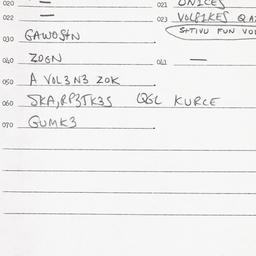 020 — 021 ONICES
022 — 023 VOLPIKES
SITIVU FUN
030 GAWOSIN
040 ZOGN 041 —
050 A VOL3N3 ZOK
060 SKA,RP3TK3S QGL KURCE
070 GUMK3